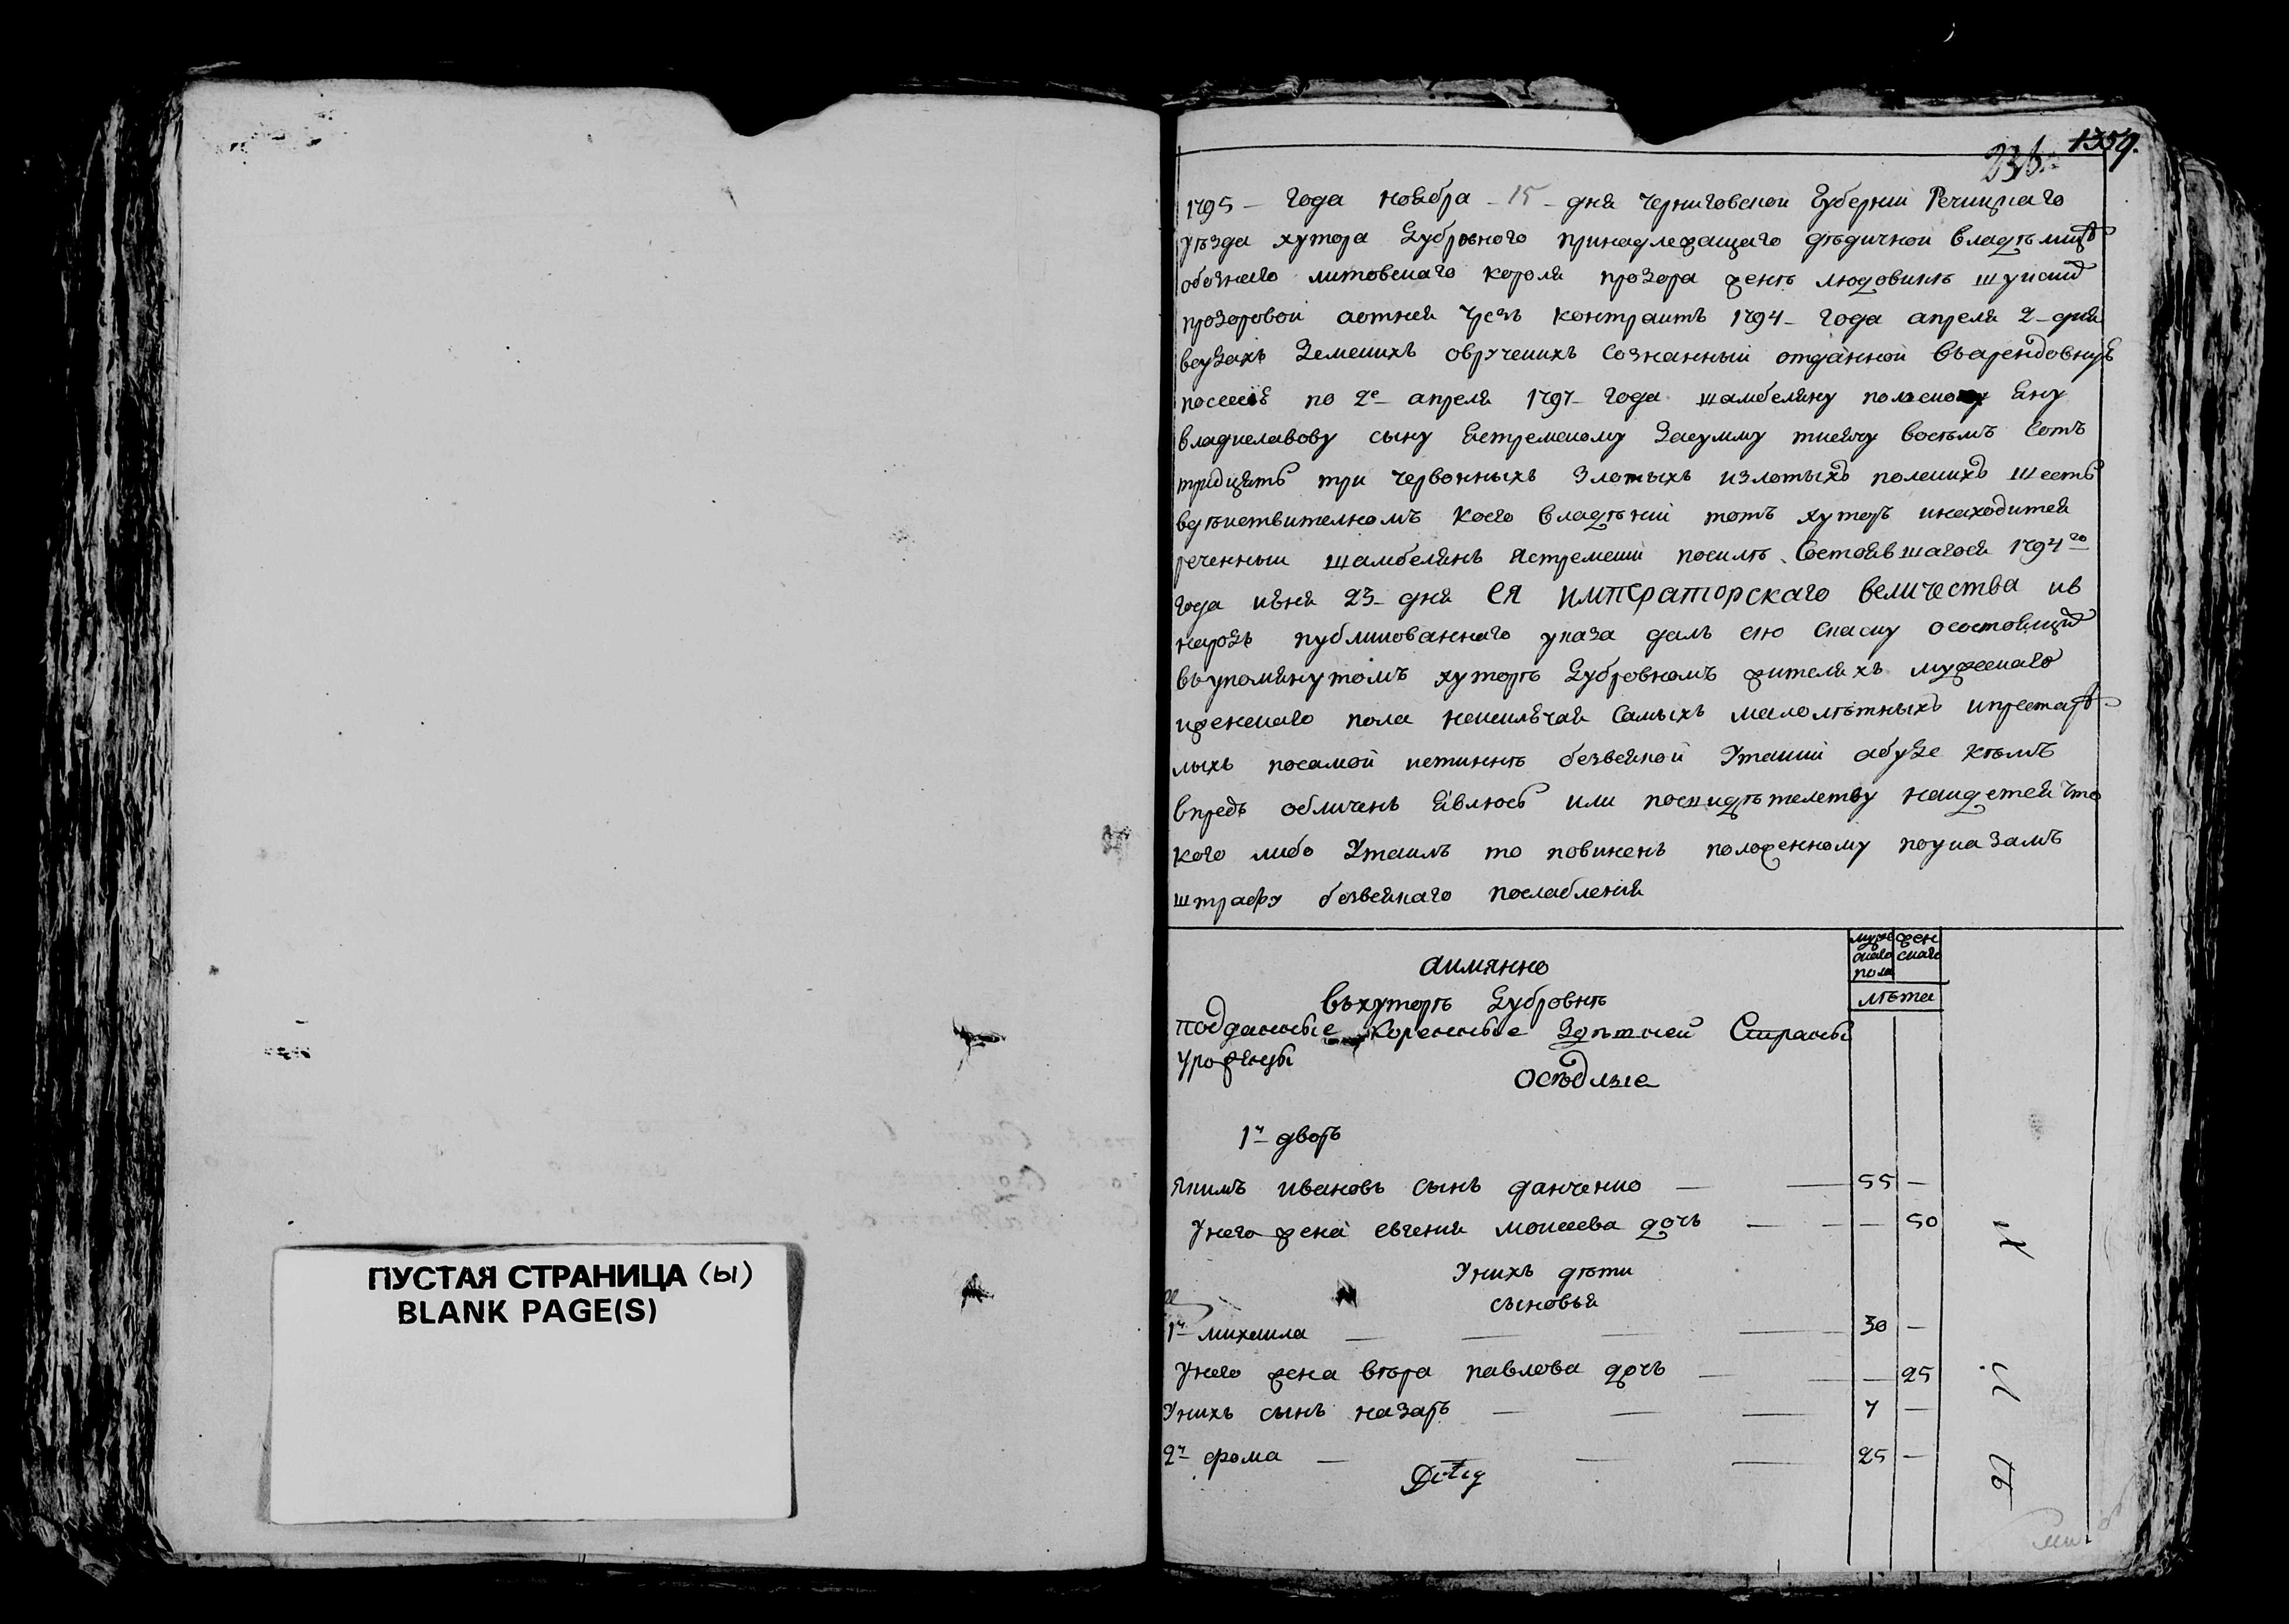 1359.
1795 – года ноября – 15 – дня черниговской губерніи Речицкаго
уѣзда хутора Зубровного принадлежащаго дѣдичной владѣлицѣ
обознаго литовскаго короля прозора женѣ людовикѣ шуйскихъ
прозоровой летней чрезъ контрактъ 1794 – года апреля 2 – дня
земскихъ овруческихъ сознанный отданной въарендовную
посессію по 2е – апреля 1797 – года шамбеляну полскому яну
владиславову сыну ястремскому засумму тисячу восѣмъ сотъ
тридцять три червонныхъ злотыхъ излотыхъ полскихъ шесть
вдѣйствителномъ коего владѣніи тотъ хуторъ инаходится
реченный шамбелянъ ястремский посилѣ Состоявшагося 1794го
года июня 23 – дня ЕЯ императорскаго величества ив
народъ публикованнаго указа далъ сию скаску осостоящихъ
въупомянутомъ хуторѣ Зубровномъ жителяхъ мужескаго
иженскаго пола неисключая самыхъ малолѣтныхъ ипрестарѣ–
лыхъ посамой истиннѣ безвсякой Утайки абуде кѣмъ
впредь обличенъ явлюсь или посвидѣтелству наидется что
кого либо Утаилъ то повиненъ положенному поуказамъ
штрафу безвсякаго послабления
мужескаго пола женскаго
аимянно
лѣта
въхуторѣ Зубровнѣ
подданные коренные Здѣшней Стираны
урожѣнцы
осѣдлые
1й дворъ
якимъ ивановъ сынъ данченко — — 55 —
Унего жена евгения моисеева дочь — — — 50
Унихъ дѣти
сыновья
1й михаила — — — — 30 —
Унего жена вѣра павлова дочь — — — 25
Унихъ сынъ назаръ — — — 7 —
2й фома — — — 25 —
ПУСТАЯ СТРАНИЦА (ы)
BLANK PAGE(S)